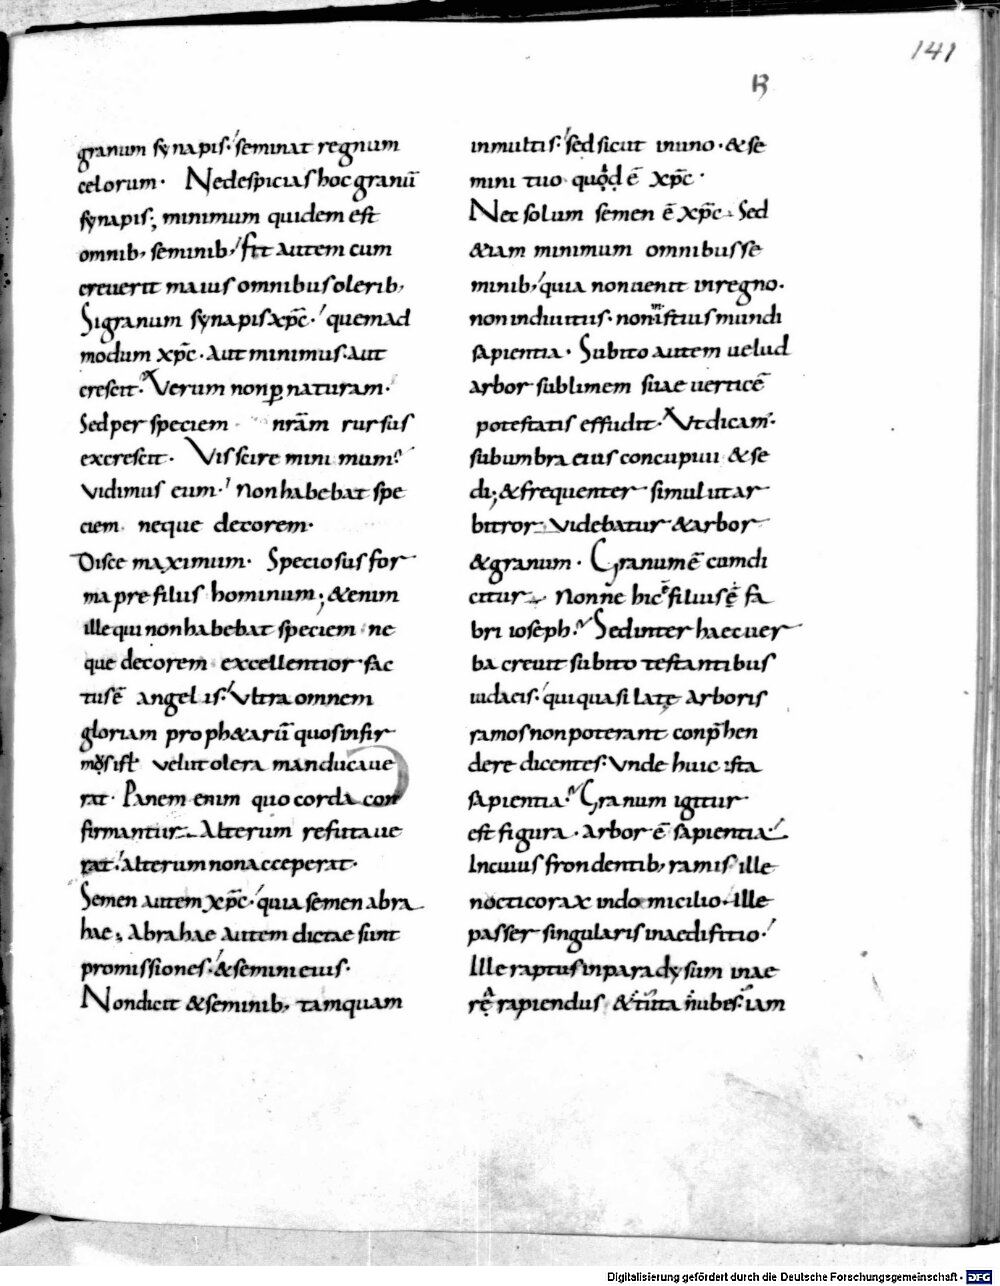 141
B
granum synapis; seminat regnum
celorum. Nedespicias hoc granū
synapis; minimum quidem est
omnib; seminib; fit autem cum
creuerit maius omnibus olerib;
Si granum synapis xp̄c; quemad
modum xp̄c. aut minimus. aut
crescit. Verum non ꝑ naturam.
Sed per speciem nrām rursus
excrescit. Vis scire minimum?
Vidimus eum. non habebat spe
ciem. neque decorem.
Disce maximum. Speciosus for
ma pre filius hominum; &enim
ille qui non habebat speciem ne
que decorem excellentior fac
tus ē angelis. Vltra omnem
gloriam proph&arū quos infir
mos ist velut olera manducaue
rat. Panem enim quo corda con
firmantur. Alterum refutaue
rat. alterum non acceperat.
Semen autem xp̄c. quia semen abra
hae; Abrahae autem dictae sunt
promissiones. & semini eius.
Non dicit & seminib; tamquam
in multis. sed sicut in uno. & se
mini tuo quod ē xp̄c.
Nec solum semen ē xp̄c. Sed
&iam minimum omnibus se
minib; quia non uenit in regno.
non induitus. non in istius mundi
sapientia. Subito autem uelud
arbor sublimem suae uerticē
potestatis effudit. Vt dicam.
sub umbra eius concupiui & se
di; & frequenter simul ut ar
bitror. videbatur & arbor
& granum. Granum ē cum di
citur. Nonne hic filius ē fa
bri ioseph? Sed inter haec uer
ba creuit subito testantibus
iudaeis. qui quasi latę arboris
ramos non poterant conp̄hen
dere dicentes. Vnde huic ista
sapientia? Granum igitur
est figura. arbor ē sapientia.
In cuius frondentib; ramis ille
nocticorax in domicilio. ille
passer singularis in aedifitio.
Ille raptus in paradysum in ae
rę rapiendus & nubes. iam
Digitalisierung gefördert durch die Deutsche Forschungsgemeinschaft - DFG